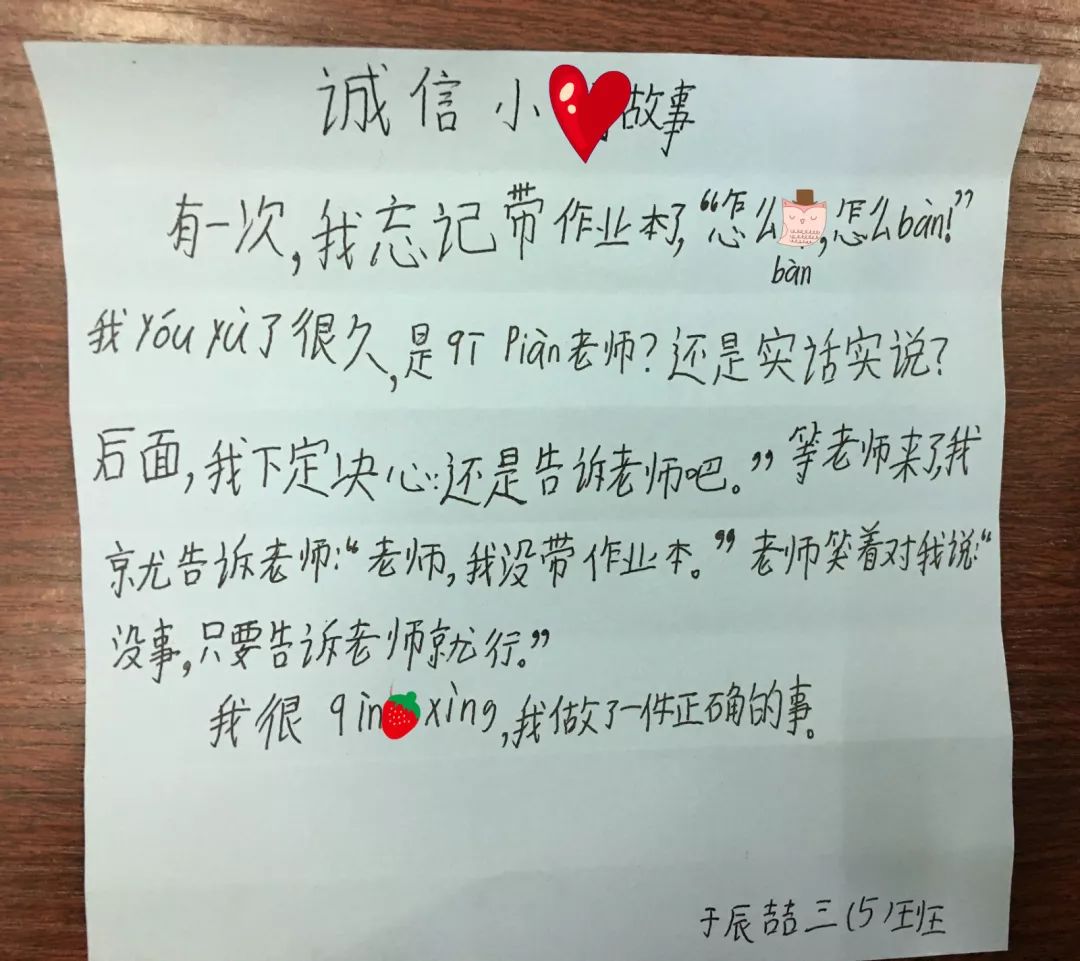 诚信小故事
有一次,我忘记带作业本了,“怎么,怎么bàn!”
bàn
我yóu yù了很久,是qī Piàn老师?还是实话实说?
后面,我下定决心:还是告诉老师吧。”等老师来了我
就告诉老师:“老师,我没带作业本。”老师笑着对我说:“
没事,只要告诉老师就行。”
我很qìn xìng,我做了一件正确的事。
于辰喆三(5)班